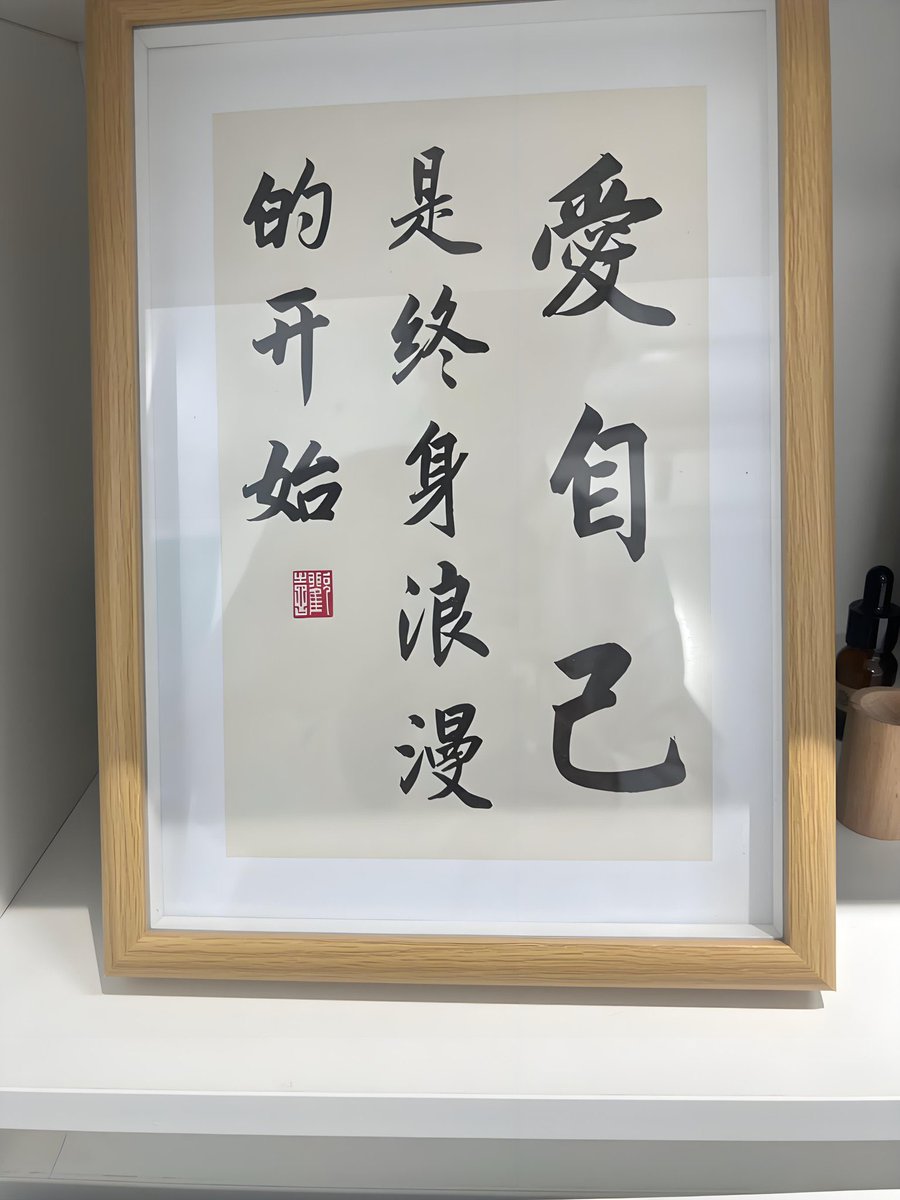 愛自己
是终身浪漫
的开始